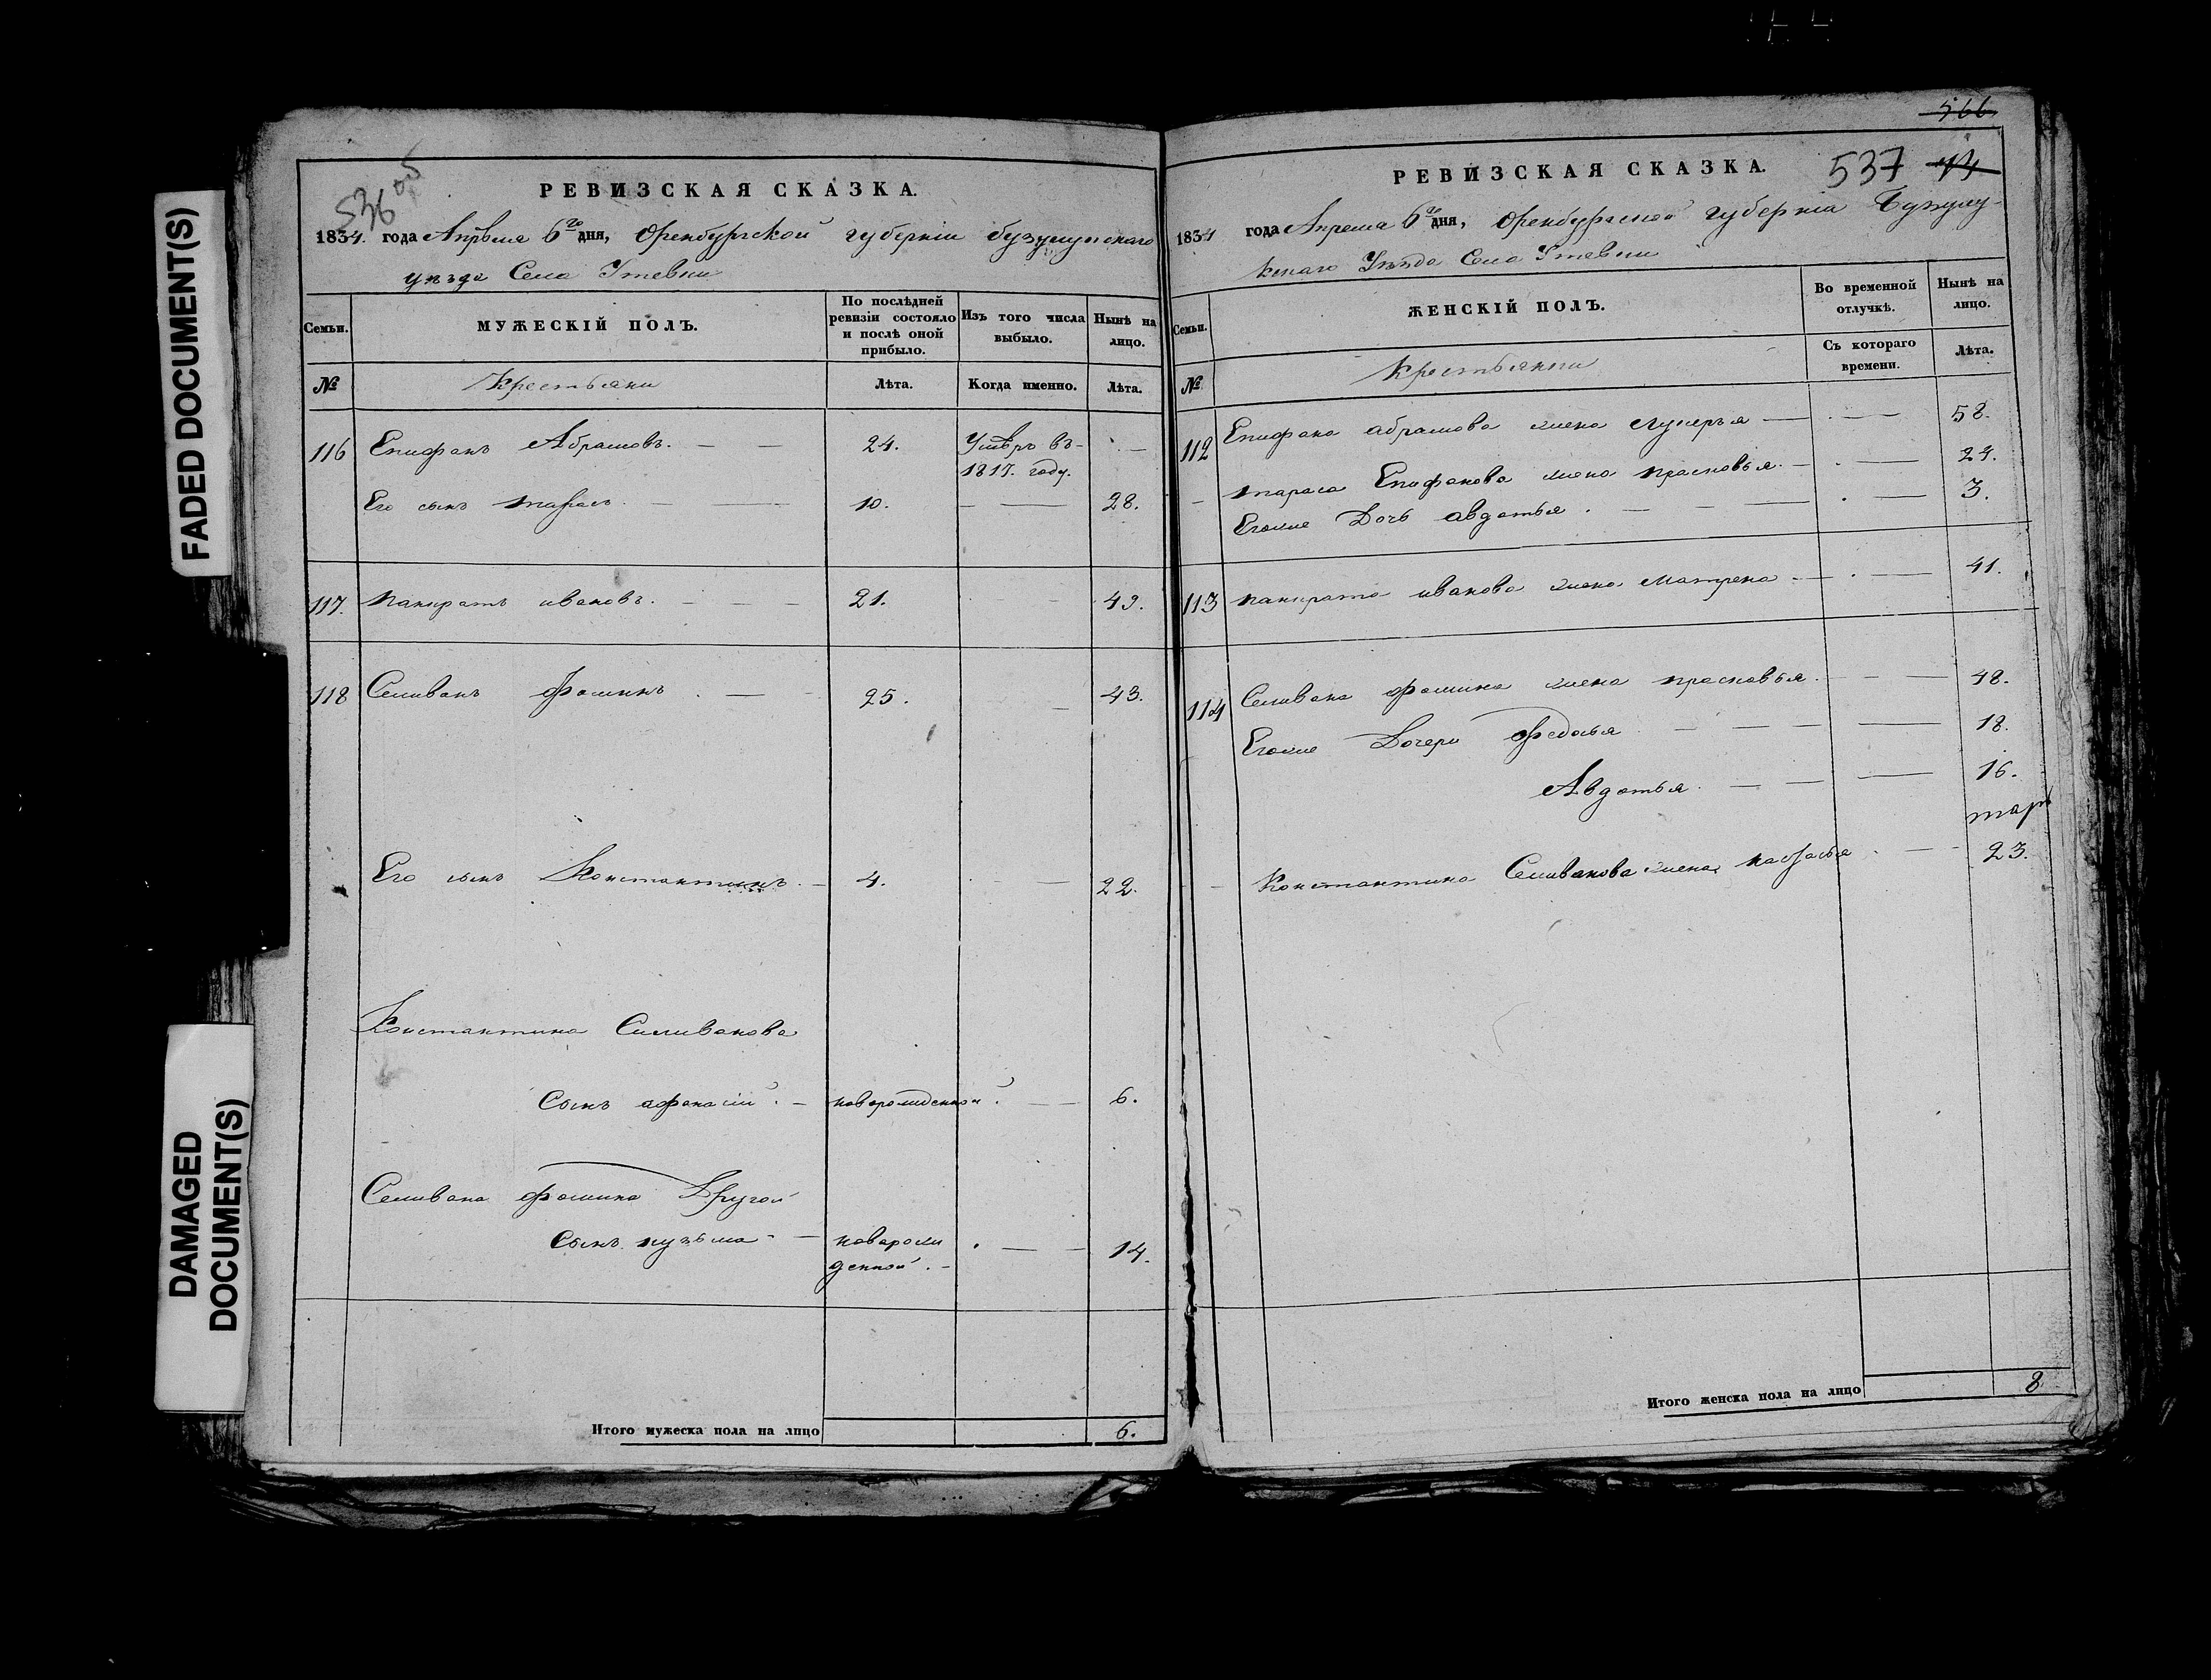 FADED DOCUMENT(S)
DAMAGED
DOCUMENT(S)
536 об
РЕВИЗСКАЯ СКАЗКА.
1834. года Апрѣля 6го дня, Оренбургской губерніи бузулукскаго
уѣзда Села Утевки
Семьи.
МУЖЕСКІЙ ПОЛЪ.
По послѣдней ревизіи состояло и послѣ оной прибыло.
Изъ того числа выбыло.
Нынѣ на лицо.
№
Крестьяни
Лѣта.
Когда именно.
Лѣта.
116 Епифанъ Абрамовъ. 24. Умѣръ въ 1817. году.
Его сынъ тарасъ 10. 28.
117. панкратъ ивановъ. 21. 49.
118 Селиванъ фоминъ 25. 43.
Его сынъ Константинъ. 4. 22.
Константина Селиванова
сынъ афанасий. новорожденной. 6.
Селивана фомина Другой
сынъ кузьма новорожденной. 14.
Итого мужеска пола на лицо 6.
566
537
РЕВИЗСКАЯ СКАЗКА.
1834 года Апреля 6го дня, Оренбургской губернiи Бузулукскаго Уѣзда Села Утевки
Семьи.
ЖЕНСКІЙ ПОЛЪ.
Во временной отлучкѣ.
Нынѣ на лицо.
№
Крестьянки
Съ котораго времени.
Лѣта.
112 Епифана абрамова жена лукерья 58.
тараса Епифанова жена прасковья. 24.
Егоже Дочь авдотья. 3.
113 панкрата иванова жена матрена 41.
114 Селивана фомина жена прасковья. 48.
Егоже Дочери федосья 18.
Авдотья. 16.
Константина Селиванова жена настасья 23.
Итого женска пола на лицо 8